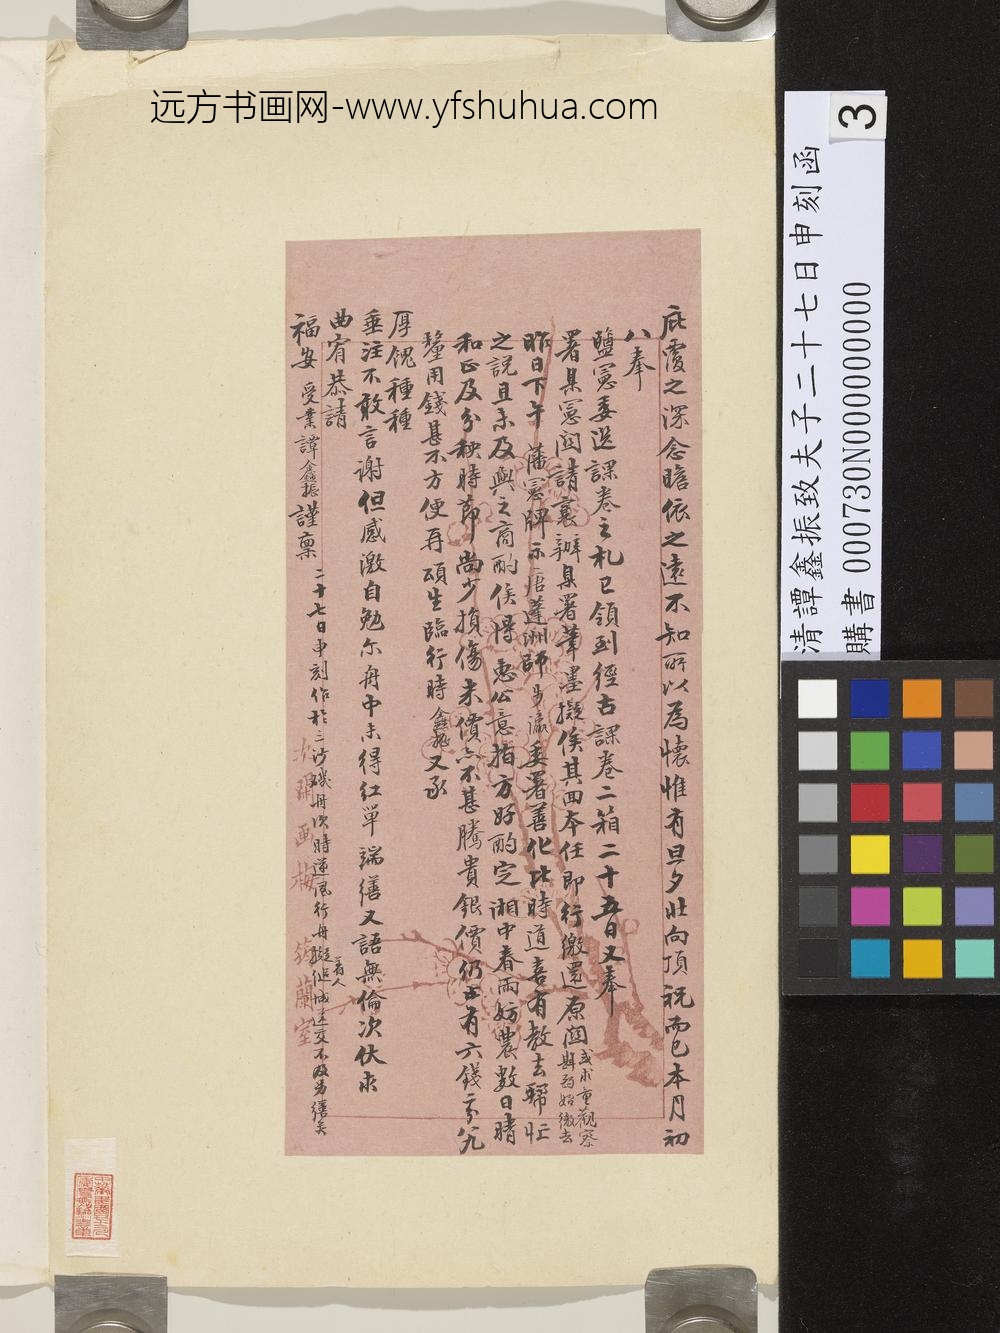 远方书画网-www.yfshuhua.com
3
清譚鑫振致夫子二十七日申刻函
購書 000730N000000000
庇覆之深念瞻依之遠不知所以為懷惟有旦夕北向頂祝而已本月初
八奉
鹽憲委送課卷之札已領到徑古課卷二箱二十五日又奉
署臬憲關請襄辦臬署筆墨擬俟其回本任即行繳還原關
昨日下午 藩憲牌示唐蓬洲師步瀛委署善化比時道喜有教去幫忙
之說且未及與之商酌俟得惠公意指方好酌定湘中春雨妨農數日晴
和正及分秧時節尚少損傷米價亦不甚騰貴銀價仍有六錢
釐用錢甚不方便再頌生臨行時鑫振又承
厚餽種種
垂注不敢言謝但感激自勉尔舟中未得紅單 端繕又語無倫次伏求
曲宥恭請
福安 受業譚鑫振謹稟
二十七日申刻作於三汊磯舟次時逆風行舟
画梅
蘭室